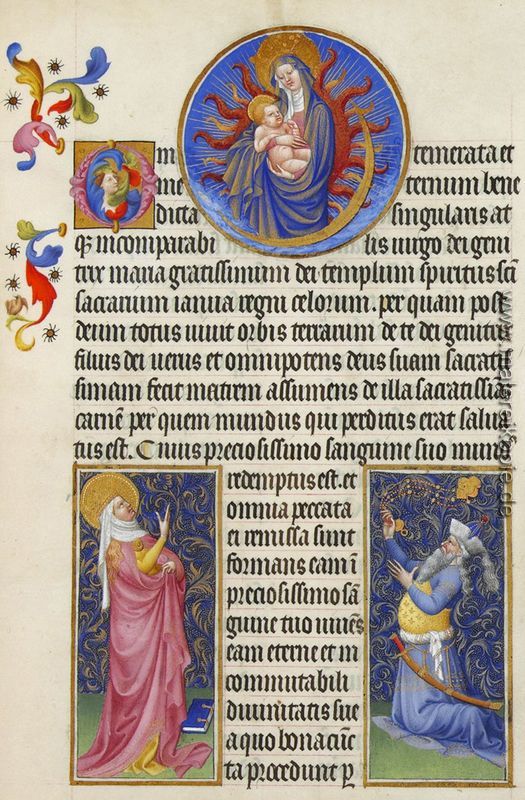 O in temerata et
in e ternum bene
dicta singularis at
qꝫ incomparabi lis uirgo dei geni
trix maria gratissimum dei templum spiritus scī
sacrarium ianua regni celorum. per quam post
deum totus uiuit orbis terrarum de te dei genitri
filius dei uerus et omnipotens deus suam sacratis
simam fecit matrem assumens de illa sacratissim
carnē per quem mundus qui perditus erat salua
tus est. Cuius preciosissimo sanguine suo mund
redemptus est. et
omnia peccata
ei remissa sunt
formans eam ī
preciosissimo sā
guine tuo iuuēs
eam eterne et in
commutabili
diuinitatis sue
a quo bona cūc
ta procedunt ꝑ